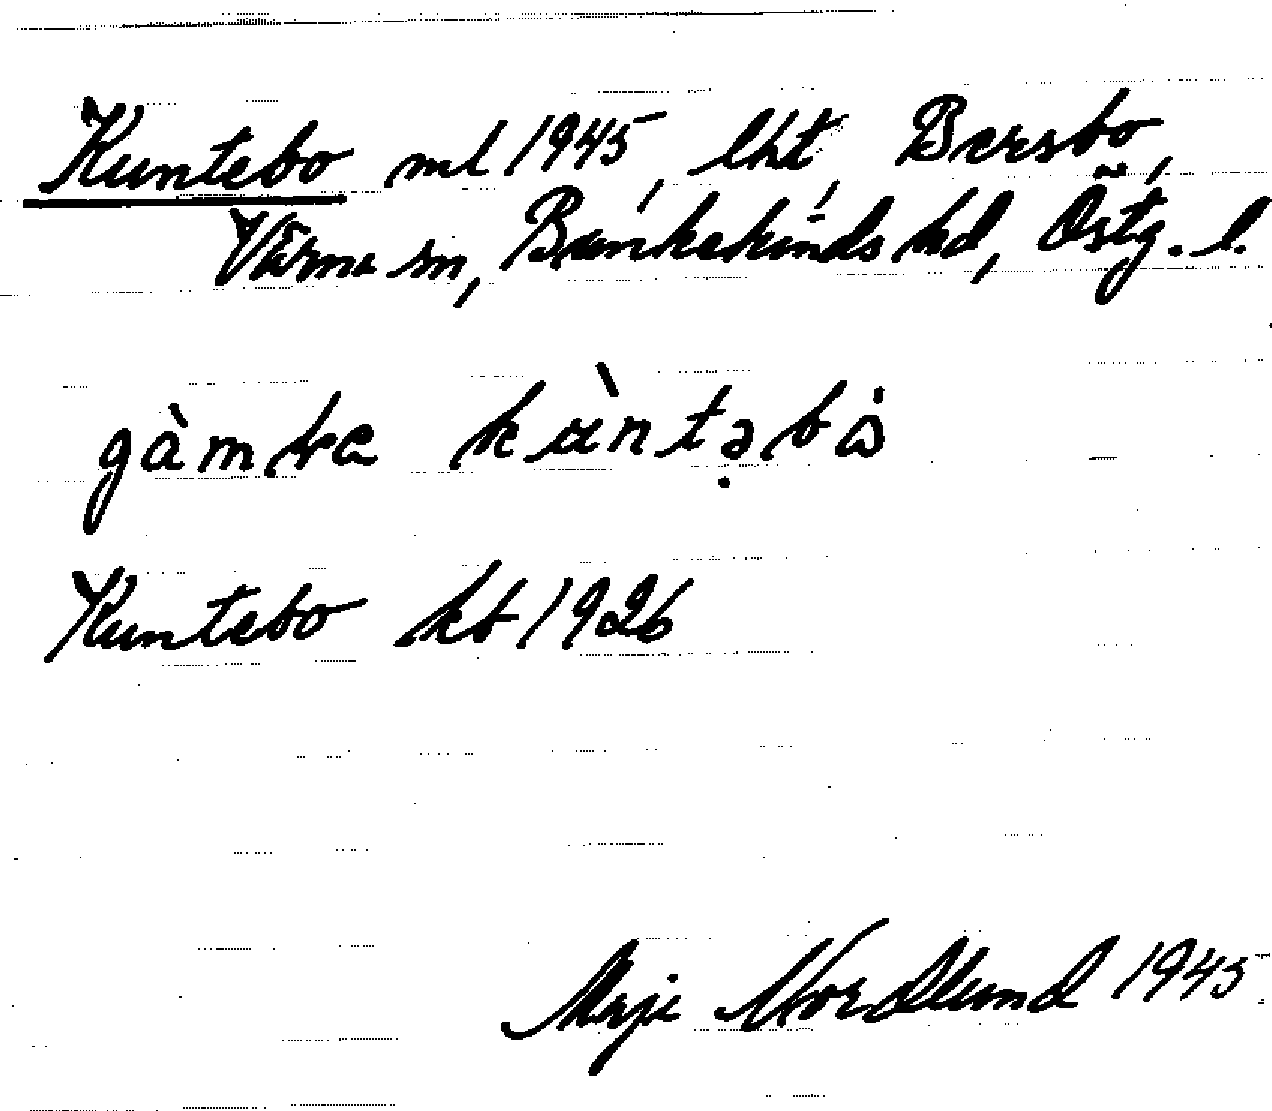 Kuntebo ml 1945, lht Bersbo,
Värna sn, Bankekinds hd, Östg. l.
gàmḷa kùntəbò
Kuntebo kb 1926
Maja Nordlund 1945